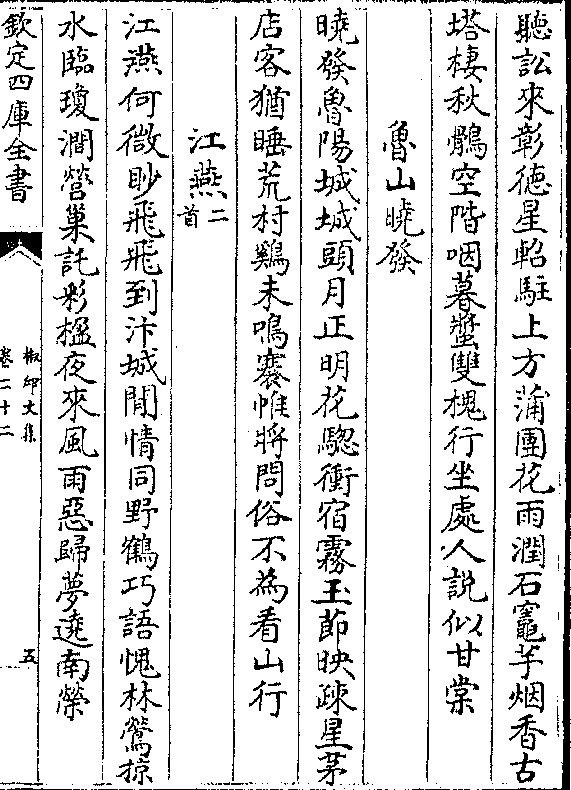 聽訟來彰德星軺駐上方蒲團花雨潤石竈芋烟香古
塔棲秋鶻空階咽暮螿雙槐行坐處人説似甘棠
魯山曉發
曉發魯陽城城頭月正明花驄衝宿霧玉節映疎星茅
店客猶睡荒村鷄未鳴褰帷將問俗不為看山行
江燕二首
江燕何微眇飛飛到汴城閒情同野鶴巧語愧林鶯掠
水臨瓊澗營巢託彩楹夜來風雨惡歸夢遶南榮
欽定四庫全書
椒邱文集
卷二十二
五